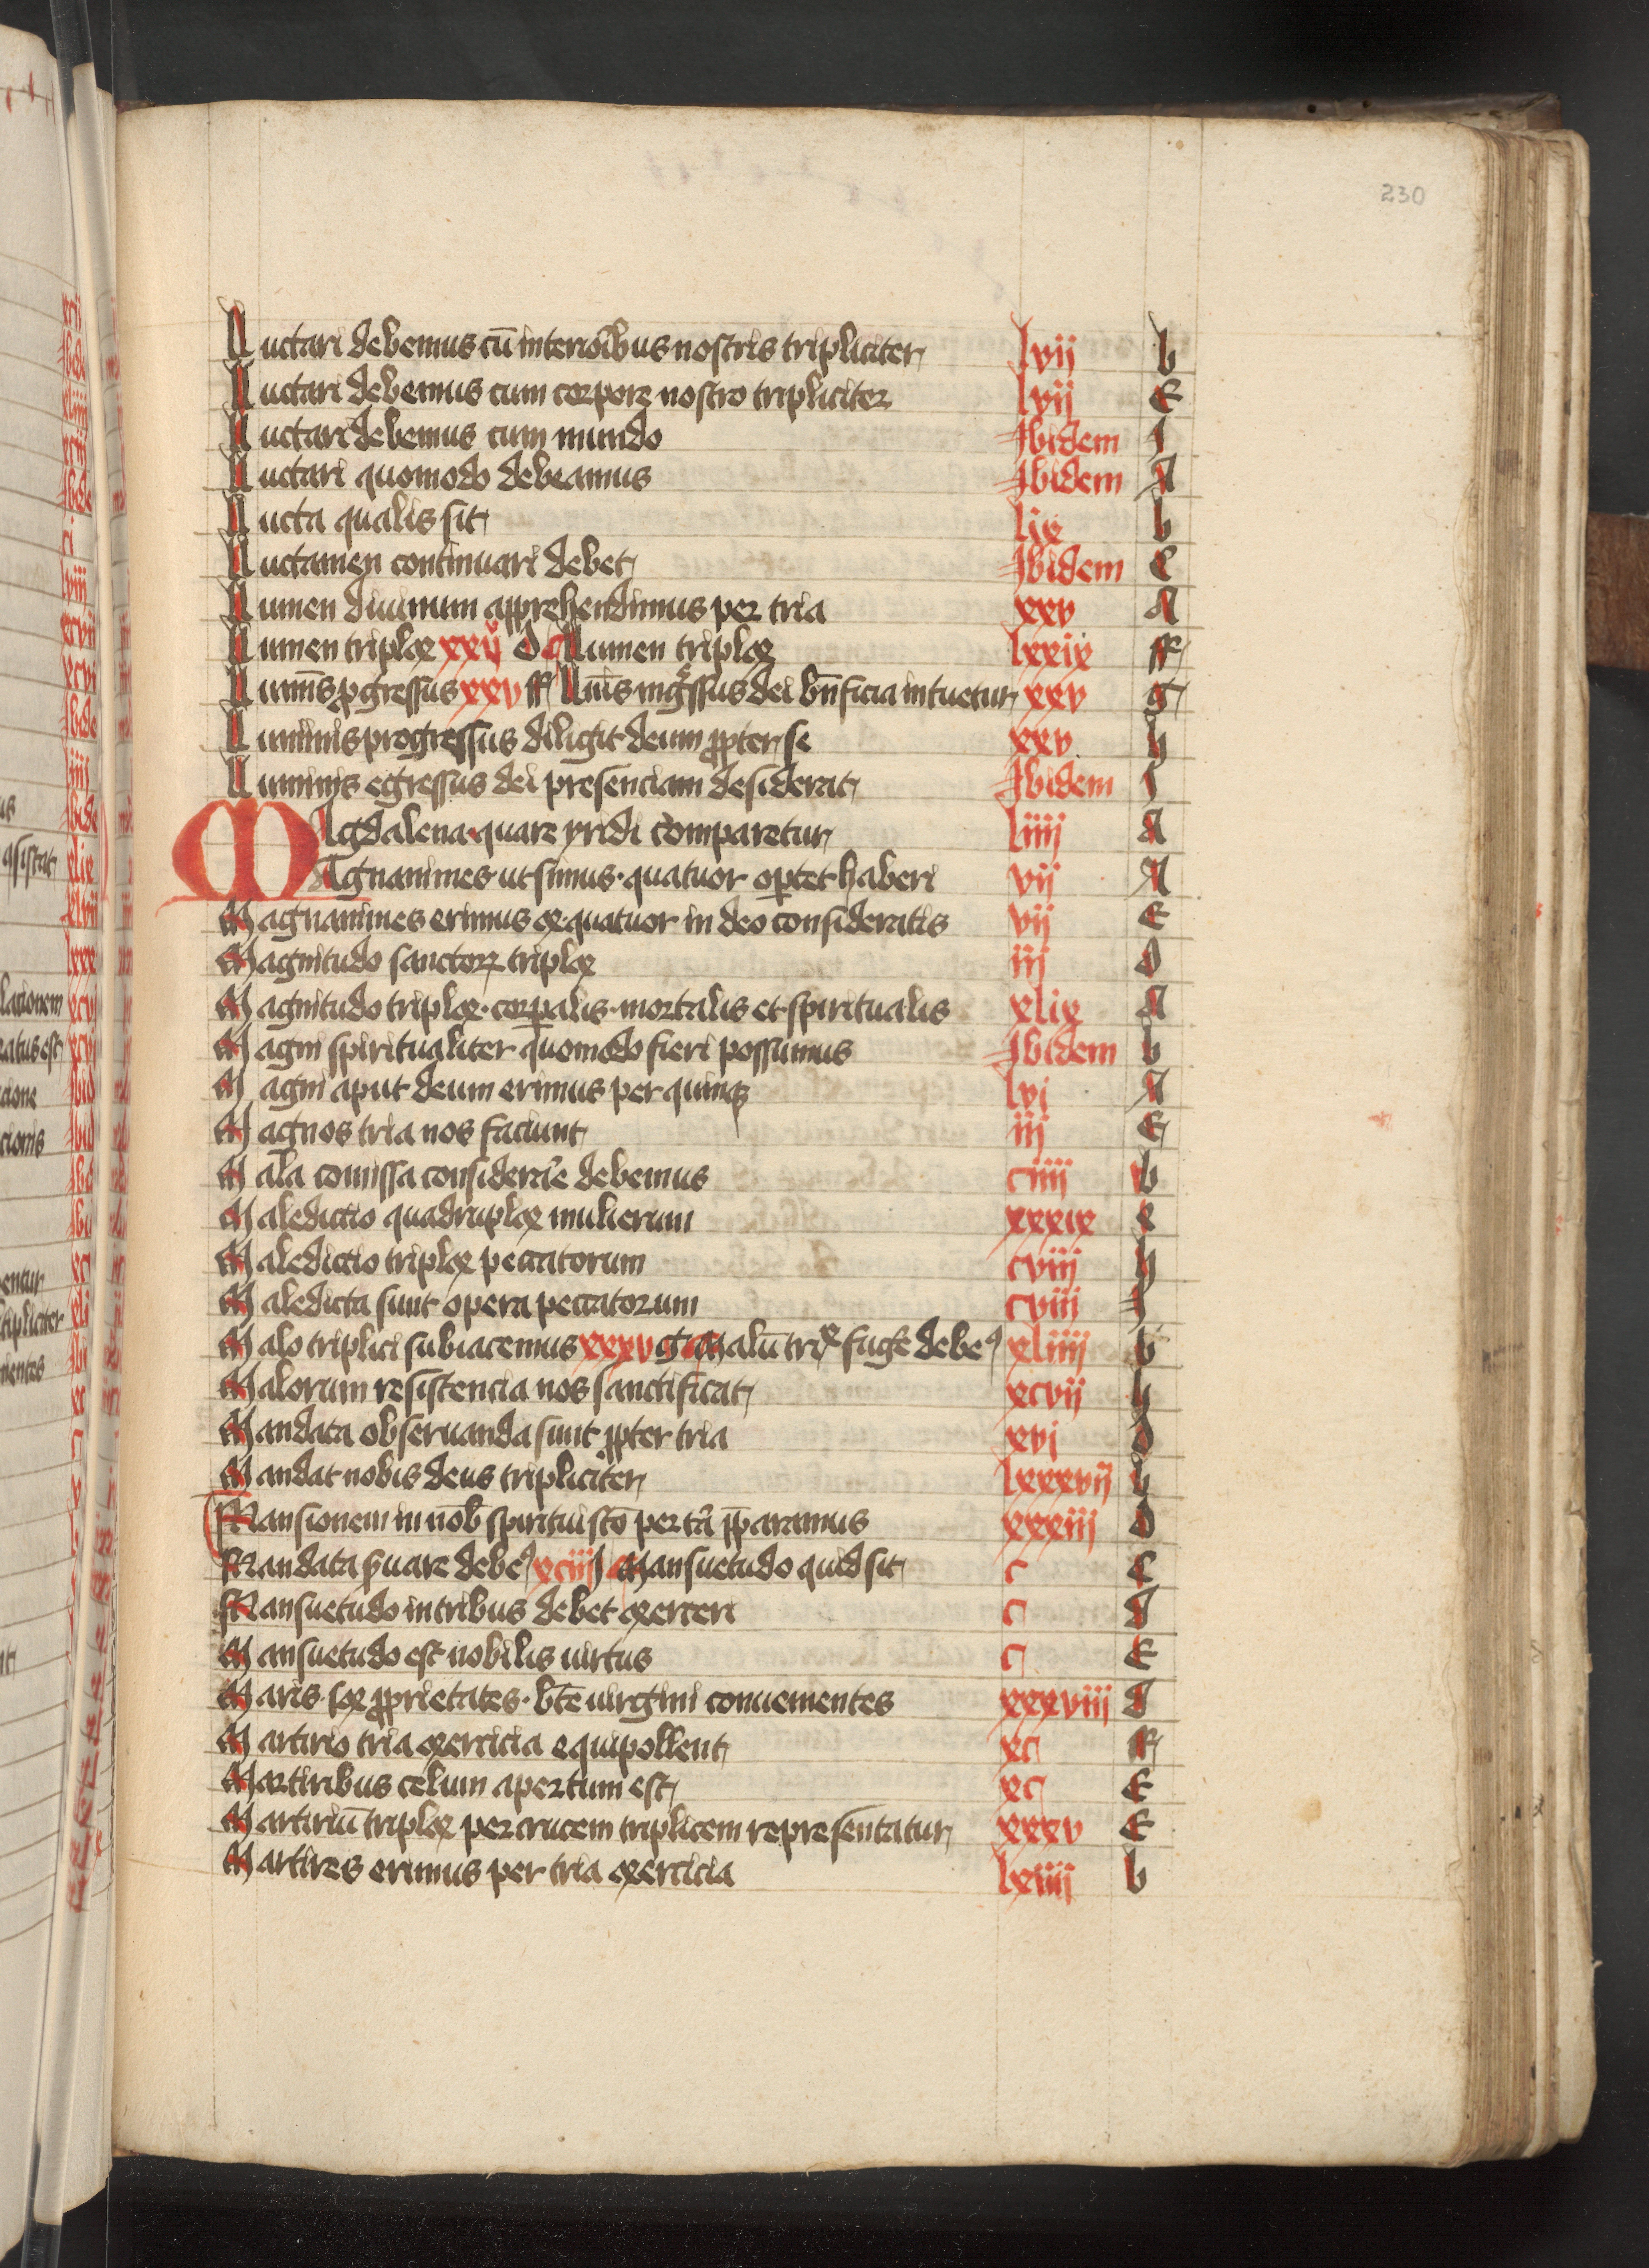 230
Luctari debemus cū interiōibus nostris tripliciter lvij b
Luctari debemus cum corpore nostro tripliciter lvij E
Luctari debemus cum mundo Ibidem I
Luctari quomodo debeamus Ibidem A
Lucta qualis sit lix b
Luctamen continuari debet Ibidem C
Lumen diuinum apprehendimus per tria xxv A
Lumen triplex xxv D Lumen triplex lxxix ff
Lumīs ꝓgressus xxv ff Lūis ingssus dei bn̄ficia intuetur xxv g
Luminis progressus diligit deum ꝓpter se xxv h
Luminis egressus dei presenciam desiderat Ibidem I
MAgdalena quare yridi comparetur liiij A
MAgnanimes ut simus quatuor oꝑtet haberi vij A
Magnanimes erimus ex quatuor in deo consideratis vij E
Magnitudo sanctoꝝ triplex iij D
Magnitudo triplex corꝑalis mortalis et spiritualis xlix A
Magni spiritualiter quomodo fieri possumus Ibidem b
Magni aput deum erimus per quinqꝫ lvj A
Magnos tria nos faciunt iij E
Mala comissa considerāe debemus ciiij b
Maledictio quadruplex mulierum xxxix e
Maledictio triplex peccatorum cviij h
Maledicta sunt opera peccatorum cviij I
Malo triplici subiacemus xxxv g Malū trix fuge debeꝰ xliiij b
Malorum resistencia nos sanctificat xcvij h
Mandata obseruanda sunt ꝓpter tria xvj D
Mandat nobis deus tripliciter lxxxvij h
Mansionem in nob spiritui sc̄o per tā p̄paramus xxxiij D
Mandata ẜuare debeꝰ xciiij h Mansuetudo quid sit c C
Mansuetudo in tribus debet exerceri c d
Mansuetudo est nobilis uirtus c E
Maris sex ꝓprietates bt̄e uirgini conuenientes xxxviij d
Martirio tria exercicia equipollent xc ff
Martiribus celum apertum est xc E
Martiriū triplex per crucem triplicem representatur xxxv E
Martires erimus per tria exercicia lxiiij b